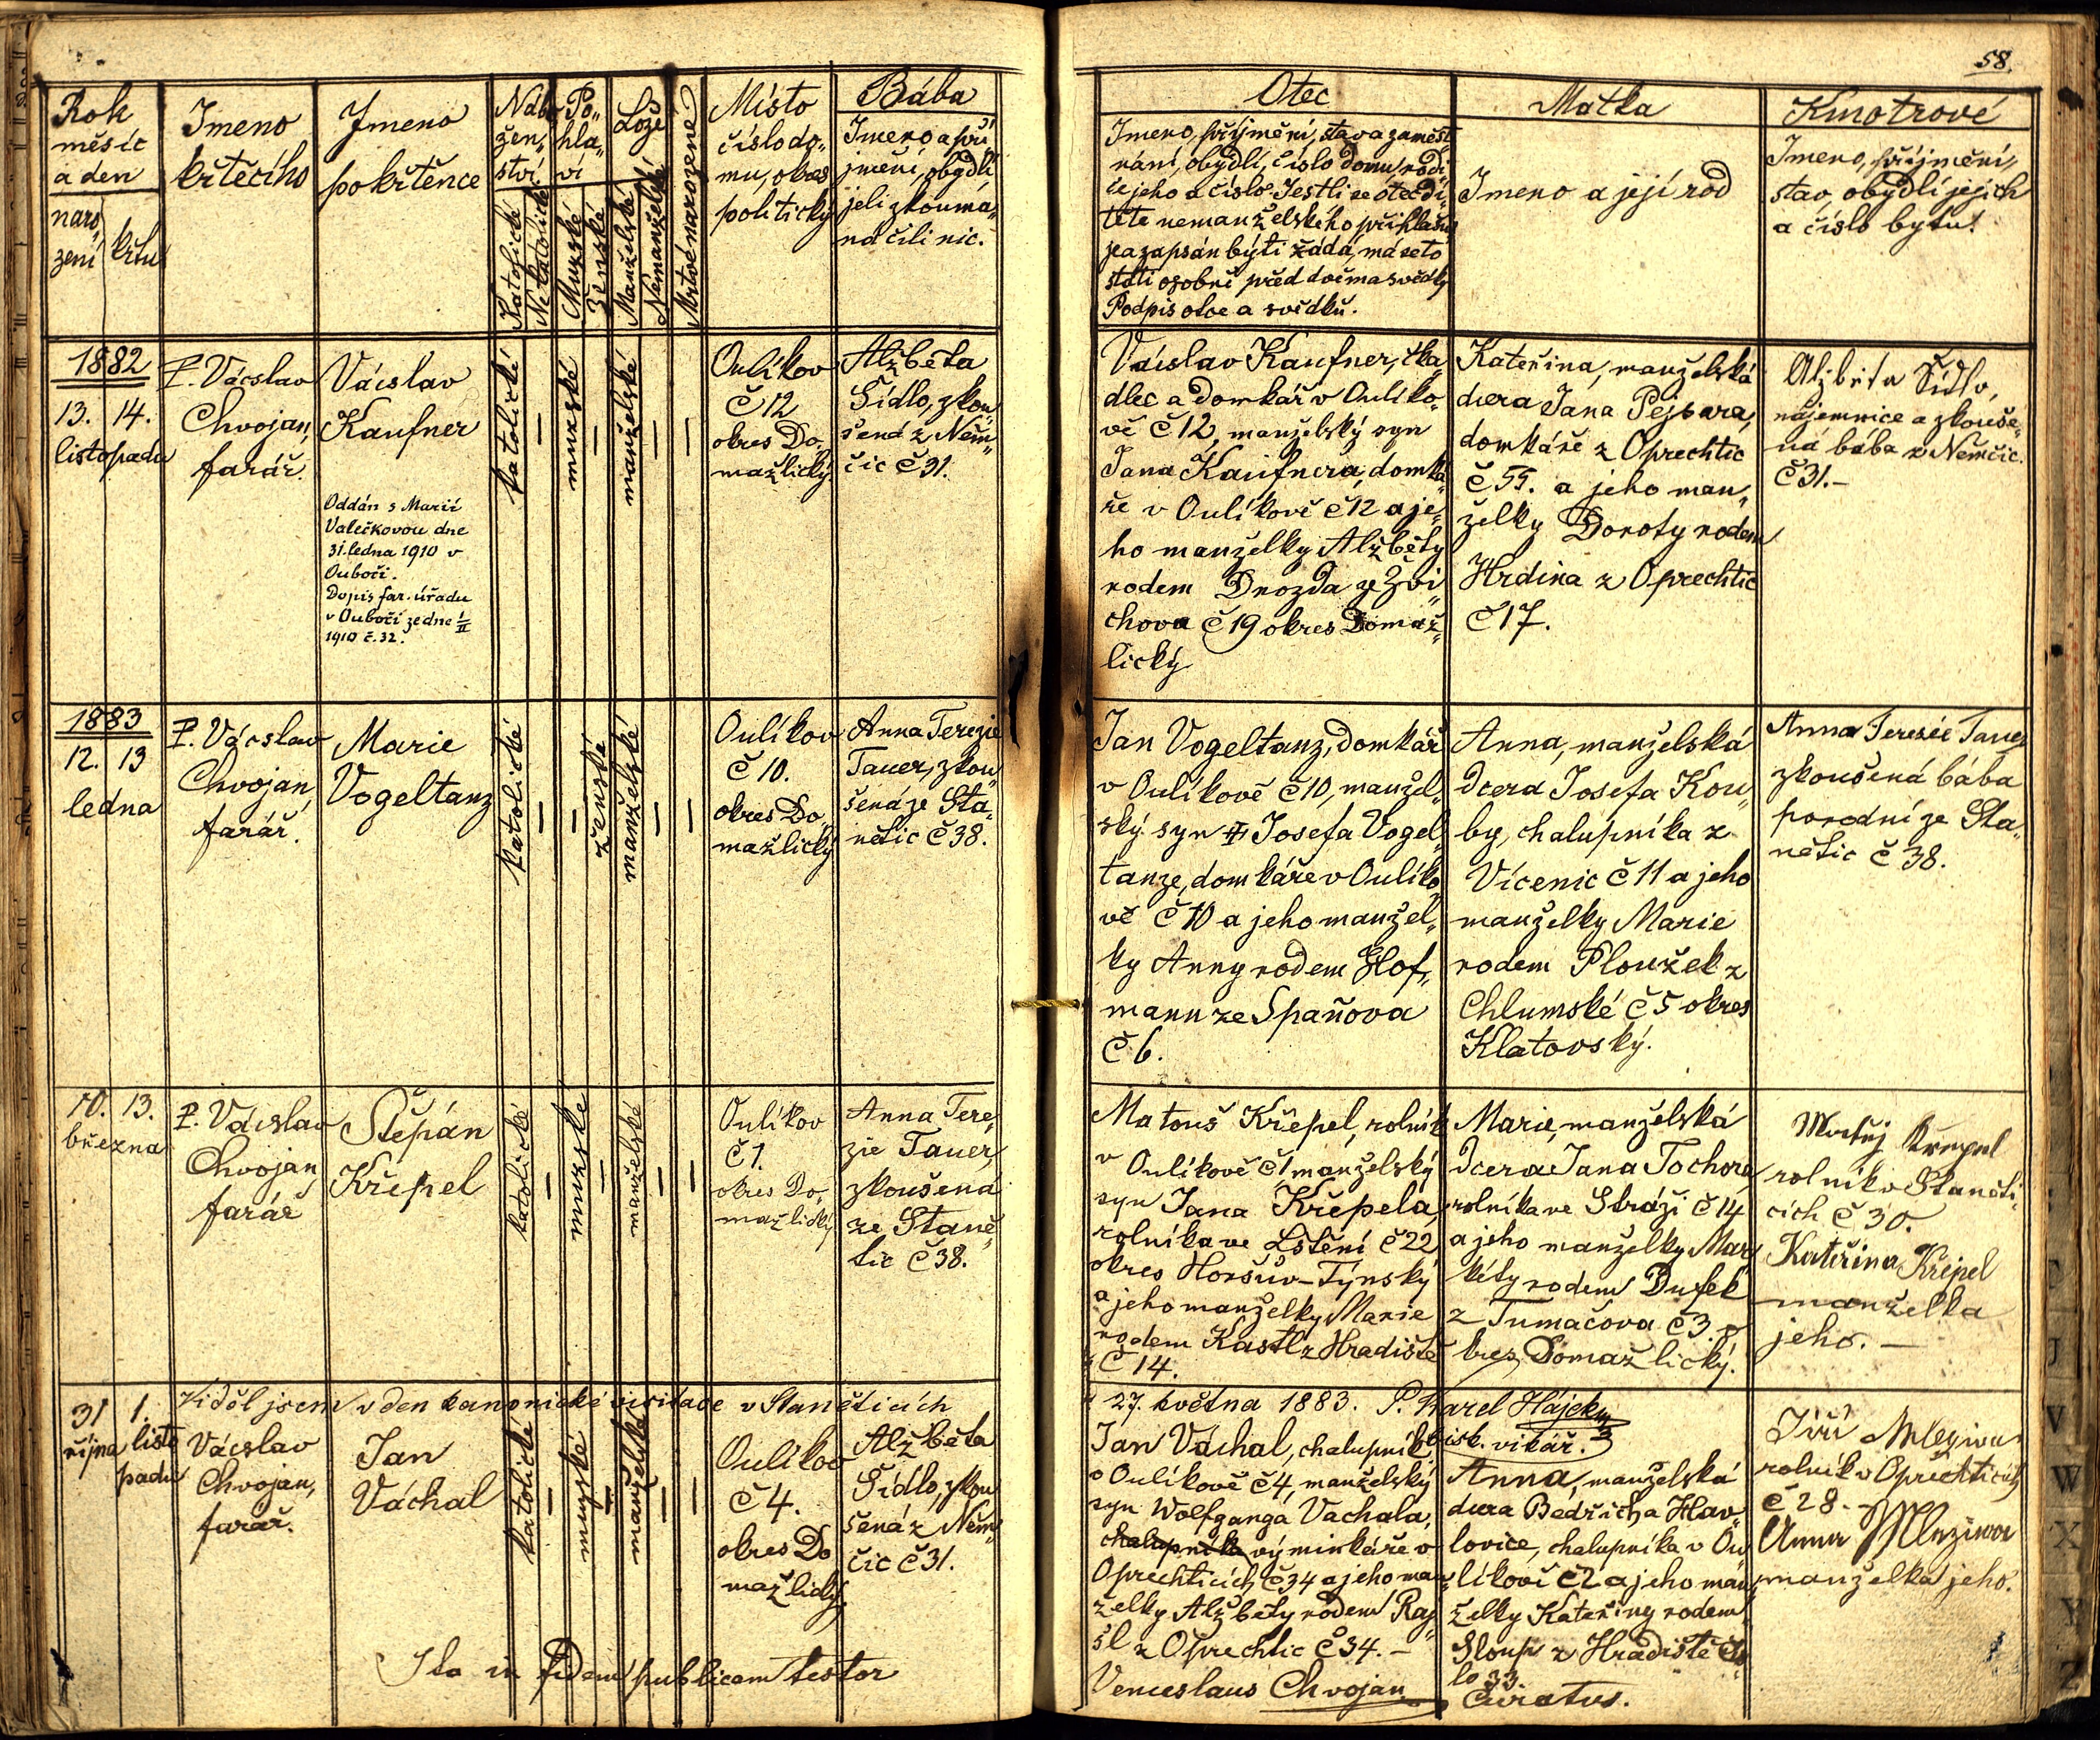 58.
Rok
měsíc
a den
naro„
zení
křtu
Jmeno
křtecího
Jmeno
pokřtěnce
Nábo
žen„
ství
Katolické
Nekatolické
Po„
hla„
ví
Mužské
Ženské
Lože
Manželské
Nemanželské
Mrtvě narozené
Místo
číslo do„
mu, okres
politický
Bába
Jmeno a pří
jmění, obydlí,
jeli zkouma„
ná čili nic.
Otec
Jmeno, příjmění, stav a zaměst
nání, obydlí, číslo domu, rodi„
če jeho a číslo. Jestli se otec dí„
těte nemanželského přihlašu
je a zapsán býti žádá, má se to
státi osobně před dvěma svědky
Podpis otce a svědků.
Matka
Jmeno a její rod
Kmotrové
Jmeno, příjmění,
stav, obydlí jejich
a číslo bytu.
1882
13. 14.
listopadu
P. Václav
Chvojan,
farář.
Václav
Kaufner
Oddán s Marií
Valečkovou dne
31. ledna 1910 v
Oubočí.
Dopis far. úřadu
v Oubočí ze dne 1/II
1910 č. 32.
katolické
mužské
manželské
Oulíkov
Č 12
okres Do„
mažlický.
Alžběta
Šídlo, zkou„
šená z Něm„
čic č 31.
Václav Kaufner, tka„
dlec a domkář v Oulíko„
vě č 12, manželský syn
Jana Kaufnera, domká„
ře v Oulíkově č 12 a je„
ho manželky Alžběty
rodem Drozda ze Zvi„
chova č 19 okres Domaž„
lický
Kateřina, manželská
dcera Jana Pejsara,
domkáře z Oprechtic
č 55. a jeho man„
želky Doroty rodem
Hrdina z Oprechtic
č 17.
Alžběta Šídlo,
nájemnice a zkouše„
ná bába z Němčic.
č 31.–
1883
12. 13
ledna
P. Václav
Chvojan,
farář.
Marie
Vogeltanz
katolické
ženské
manželské
Oulíkov
č 10.
okres Do„
mažlický
Anna Terezie
Tauer, zkou„
šená ze Sta„
nětic č 38.
Jan Vogeltanz, domkář
v Oulíkově č 10, manžel„
ský syn Josefa Vogel„
tanze, domkáře v Oulíko„
vě č 10 a jeho manžel„
ky Anny rodem Hof„
mann ze Spaňova
č 6.
Anna, manželská
dcera Josefa Kou„
by, chalupníka z
Vícenic č 11 a jeho
manželky Marie
rodem Ploužek z
Chlumské č 5 okres
Klatovský.
Anna Terezie Tauer
zkoušená bába
porodní ze Sta„
nětic č 38.
10. 13.
března
P. Václav
Chvojan,
farář
Štěpán
Křepel
katolické
mužské
manželské
Oulíkov
č 1.
okres Do„
mažlický
Anna Tere„
zie Tauer,
zkoušená
ze Staně„
tic č 38.
Matouš Křepel, rolník
v Oulíkově č 1 manželský
syn Jana Křepela,
rolníka ve Lštění č 22
okres Horšův-Týnský
a jeho manželky Marie
rodem Kastl z Hradiště
č 14.
Marie, manželská
dcera Jana Tochora,
rolníka ve Stráži č 14
a jeho manželky Mar„
kéty rodem Dufek
z Tumačova č 3. o„
kres Domažlický.
Matěj Křepel
rolník v Staněti„
cích č 30.
Kateřina Křepel
manželka
jeho. –
Viděl jsem v den kanonické visitace v Staněticích
27. května 1883. P. Karel Hájek,
bisk. vikář.
31 1.
října listo
padu
Václav
Chvojan,
farář.
Jan
Váchal
katolické
mužské
manželské
Oulíkov
č 4.
okres Do
mažlický.
Alžběta
Šídlo, zkou
šená z Něm„
čic č 31.
Jan Váchal, chalupník
v Oulíkově č 4, manželský
syn Wolfganga Vachala,
chalupníka výminkáře v
Oprechticích č 34 a jeho man„
želky Alžběty rodem Raj„
šl z Oprechtic č 34. –
Anna, manželská
dcera Bedřicha Hav„
lovice, chalupníka v Ou„
líkově č 2 a jeho man„
želky Kateřiny rodem
Sloup z Hradiště čís„
lo 33.
Jiří Mleziva
rolník v Oprechticích
č 28. –
Anna Mleziva
manželka jeho.
Ita in fidem publicam testor
Venceslaus Chvojan
Curatus.